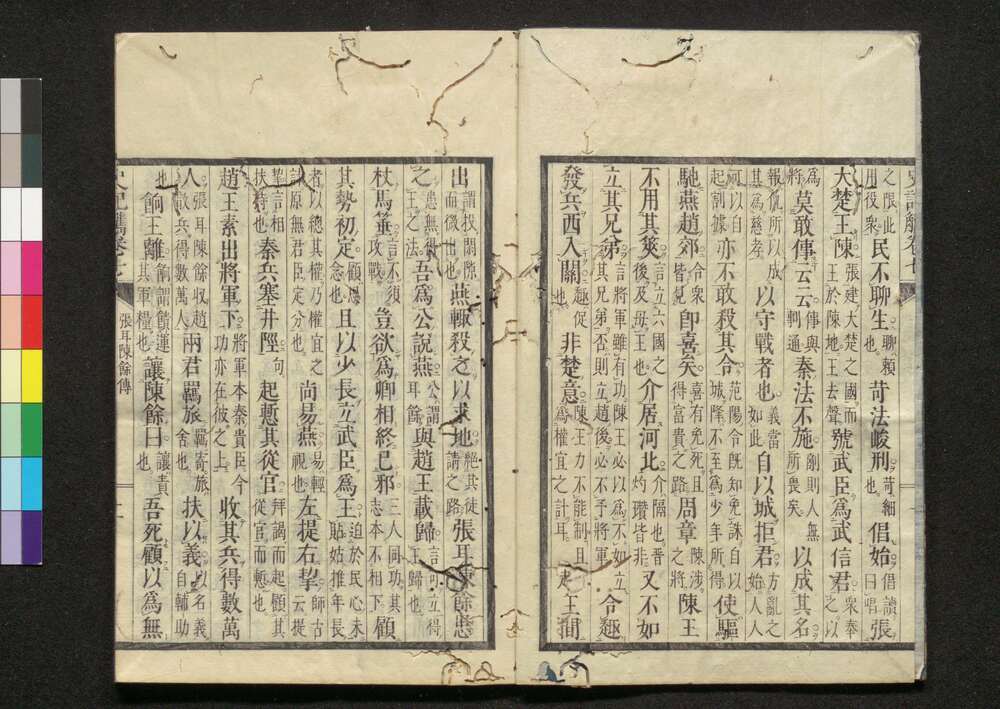 之限此用役衆民不聊生聊賴也苛法峻刑苛細也倡始倡讀曰唱張
大楚王陳張建大楚之國而王於陳地王去聲號武臣為武信君衆奉之以
為將莫敢傳云云傳與剚通秦法不施剚則人無所畏矣以成其名
報仇所以成其為慈孝以守戰者也義當如此自以城拒君方亂之始人人
可以自起割據亦不敢殺其令范陽令既知免誅自以城降不至為少年所得使驅
馳燕趙郊令衆皆見卽喜矣喜有免死且得富貴之路周章陳涉之將陳王
不用其筴言立六國之後及母王也介居河北介隔也晋灼瓉皆非又不如
立其兄弟言將軍雖有功陳王必以為不如立其兄弟否則立趙後必不予將軍令趣
發兵西入關趣促也非楚意陳王力不能制且為權宜之計耳走王間
出謂找間隙而微出也燕輒殺之以求地絶其徒請之路張耳陳餘患
之患無得王之法吾為公說燕公謂耳餘與趙王載歸言可立得王歸也
杖馬箠言不須攻戰豈欲為卿相終已邪三人同功其志本不相下顧
其勢初定顧思念也且以少長立武臣為王迫於民心未貼姑推年長
者以總其權乃權宜之計原無君臣定分也尚易燕易輕視也左提右挈師古云提
挈言相扶持也秦兵塞井陘句起慙其從官拜謁而起顧其從官而慙也
趙王素出將軍下將軍本秦貴臣今功亦在彼之上收其兵得數萬
人張耳陳餘收趙散兵得數萬人兩君羈旅羈寄旅舍也扶以義以名義自輔助
也餉王離餉謂饋運其軍糧也讓陳餘曰讓責也吾死顧以為無
張耳陳餘傳